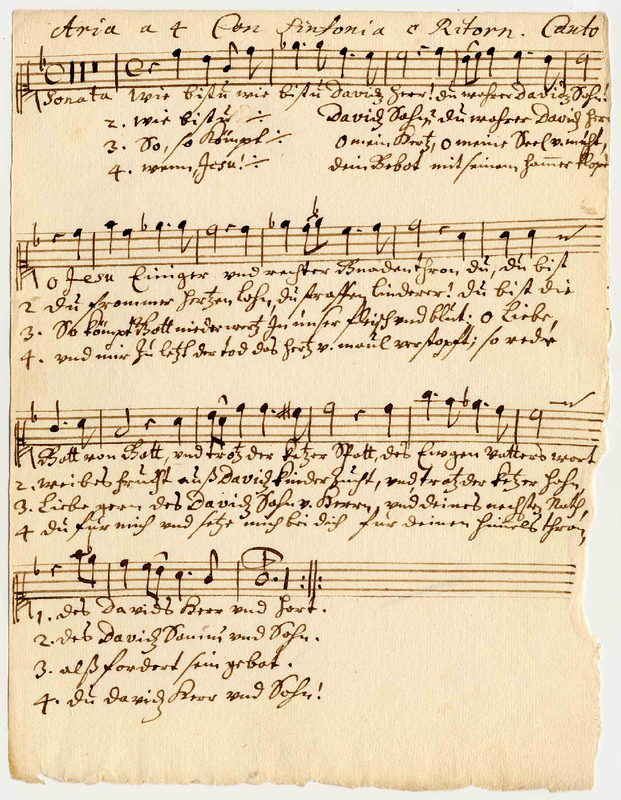 Aria a 4 Con Sinfonia e Ritorn. Canto
Sonata Wie bistu wie bistu Davidz Herr! du wahrer Davidz Sohn!
2. wie bistu ∕. Davidz Sohn, du wahrer Davidz Herr
3. So, so kömpt ∕. O mein Hertz, o meine Seel v.
4. wenn Jesu! ∕. dein mit seinem hammer
O Jesu Einiger vnd rechter Gnaden thron du, du bist
2 du frommer hertzen lohn, du straffen linderer! du bist die
3. So kömpt Gott niederwertz In unser fleisch vnd blut. O Liebe,
4. vnd mir zu letzt der tod das hertz v. maul verstopft; so rede
Gott von Gott, vnd trotz der ketzer Spott, des Ewgen vatters wort
2. weibes frucht auß Davidz kinder zucht, vnd trotz der ketzer hohn,
3. Liebe gern des Davidz Sohn v. Herrn, vnd deines nechsten Noth,
4 du für mich vnd setze mich bei dich für deinen himels thron,
1. des Davids Herr vnd hort.
2. des Davidz vnd Sohn.
3. alß fordert sein gebot.
4. du Davidz Herr vnd Sohn!